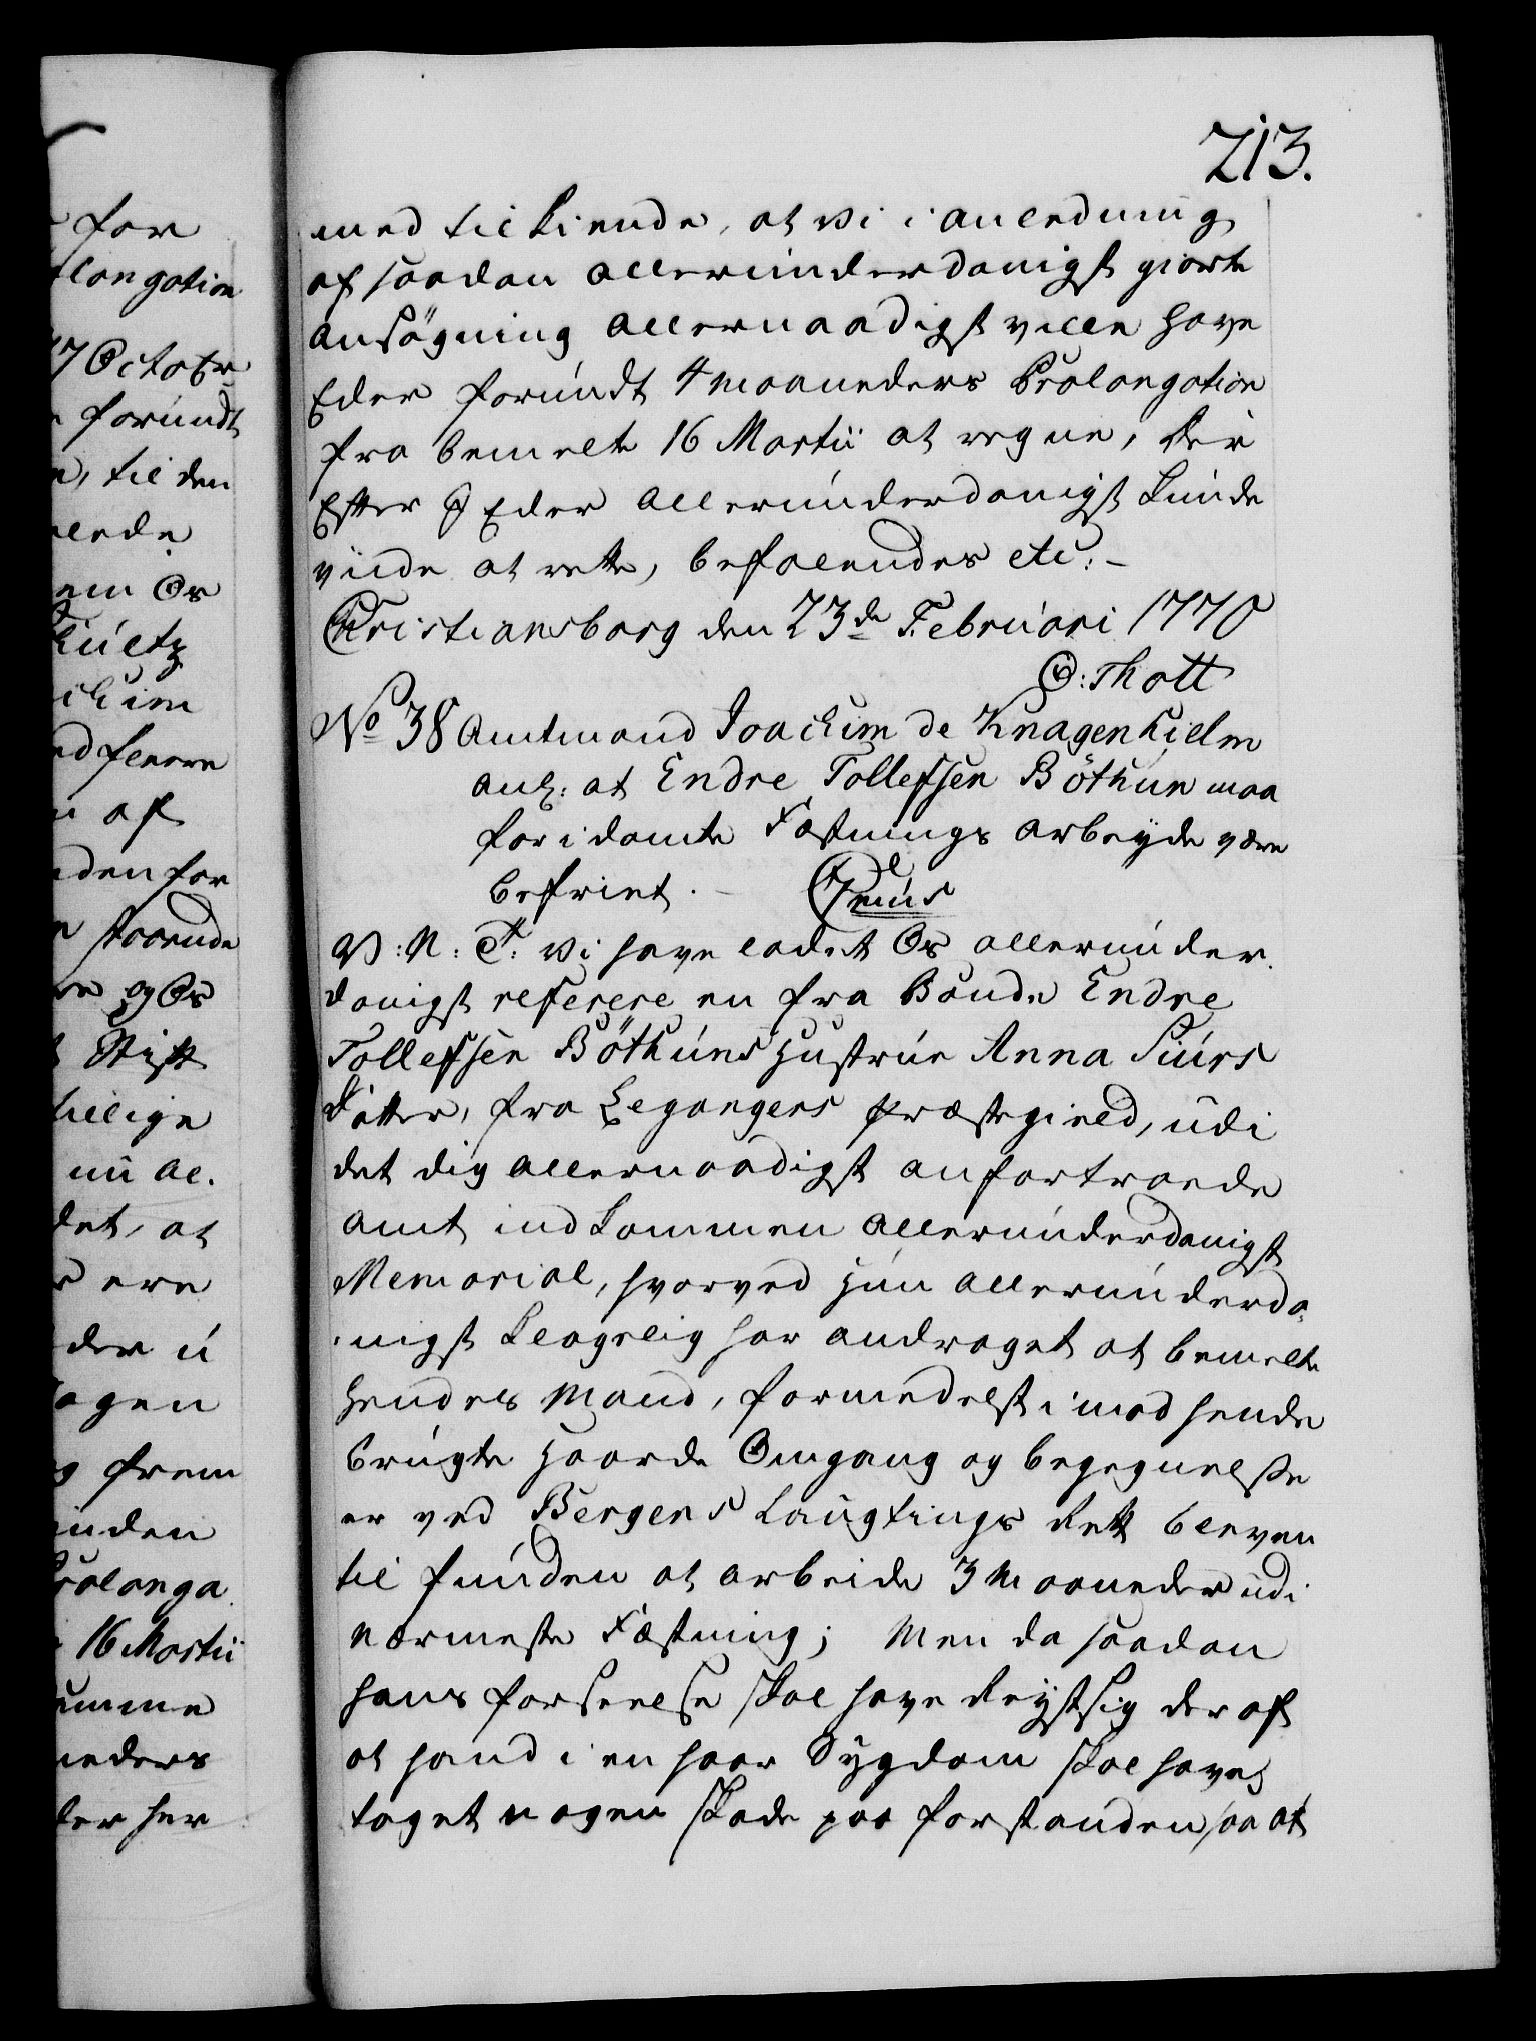 213.
for
longation
17 Octobr
forundt
til den
em Os
af
den for
staaende
og Os
Stift
nu al.
det, at
ere
der u
agen
frem
inden
Prolonga
16 Martii
neders
her
med tilkiende, at vi i anledning
af saadan allerunderdanigst giorte
ansøgning allernaadigst ville have
Eder forundt 4 Maaneders Prolongation
fra bemelte 16 Martii at regne, der
Efter I Eder allerunderdanigst kunde
viide at rette, befalendes etc: -
Christiansborg den 23de Februari 1770
O: Thott
No 38 Amtmand Joachim de Knagenhielm
anl: at Endre Tollefsen Böthun maa
for idømte Fæstnings arbeyde være
befriet. -
V: N: T: Vi have ladet Os allerunder
danigst referere en fra Bonde Endre
Tollefsen Böthuns Hustrue Anna Siurs
Datter, fra Legangers Præstegield, udi
det dig allernaadigst anfortroede
Amt indkommen allerunderdanigst
Memorial, hvorved hun allerunderda
nigst klagelig har andraget at bemelte
hendes Mand, formedelst imod hende
brugte haarde Omgang og begegnelse
er ved Bergens Laugtings Rett bleven
til funden at arbeide 3 Maaneder udi
nærmeste Fæstning; Men da saadan
hans forseelse skal have reystsig der af
at hand i en haar Sygdom skal have
taget nogen skade paa forstanden saa at